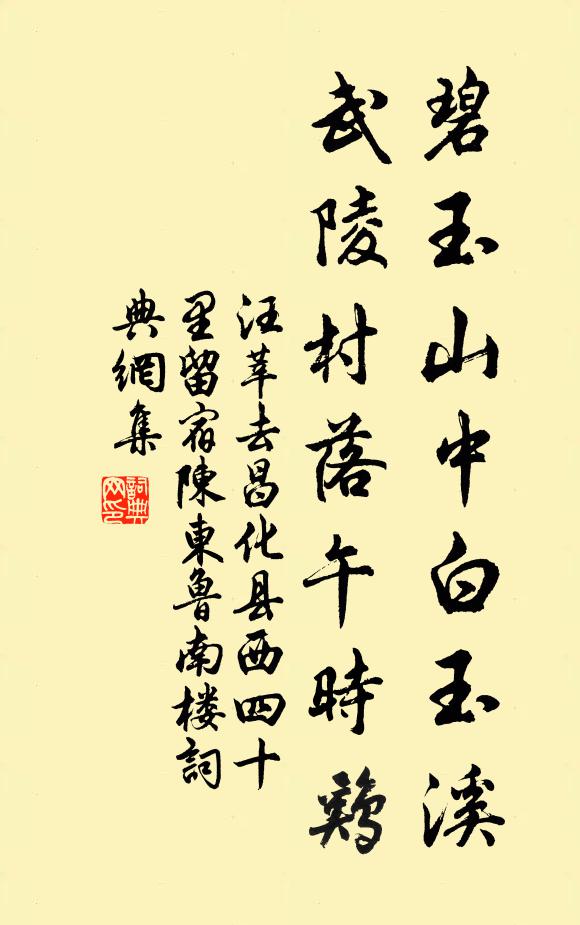 碧玉山中白玉溪
武陵村落午時鷄
汪莘去昌化县西四十
里留宿陳東魯南楼詞
典網集
詞典
网印